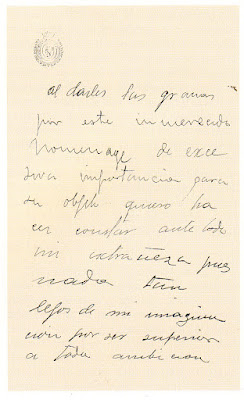 al darles las gracias
por este inmerecido
homenage de exce
siva importancia para
su objeto quiero ha
cer constar ante todo
mi extrañeza pues
nada tan
lejos de mi imagina
cion por ser superior
a toda ambicion